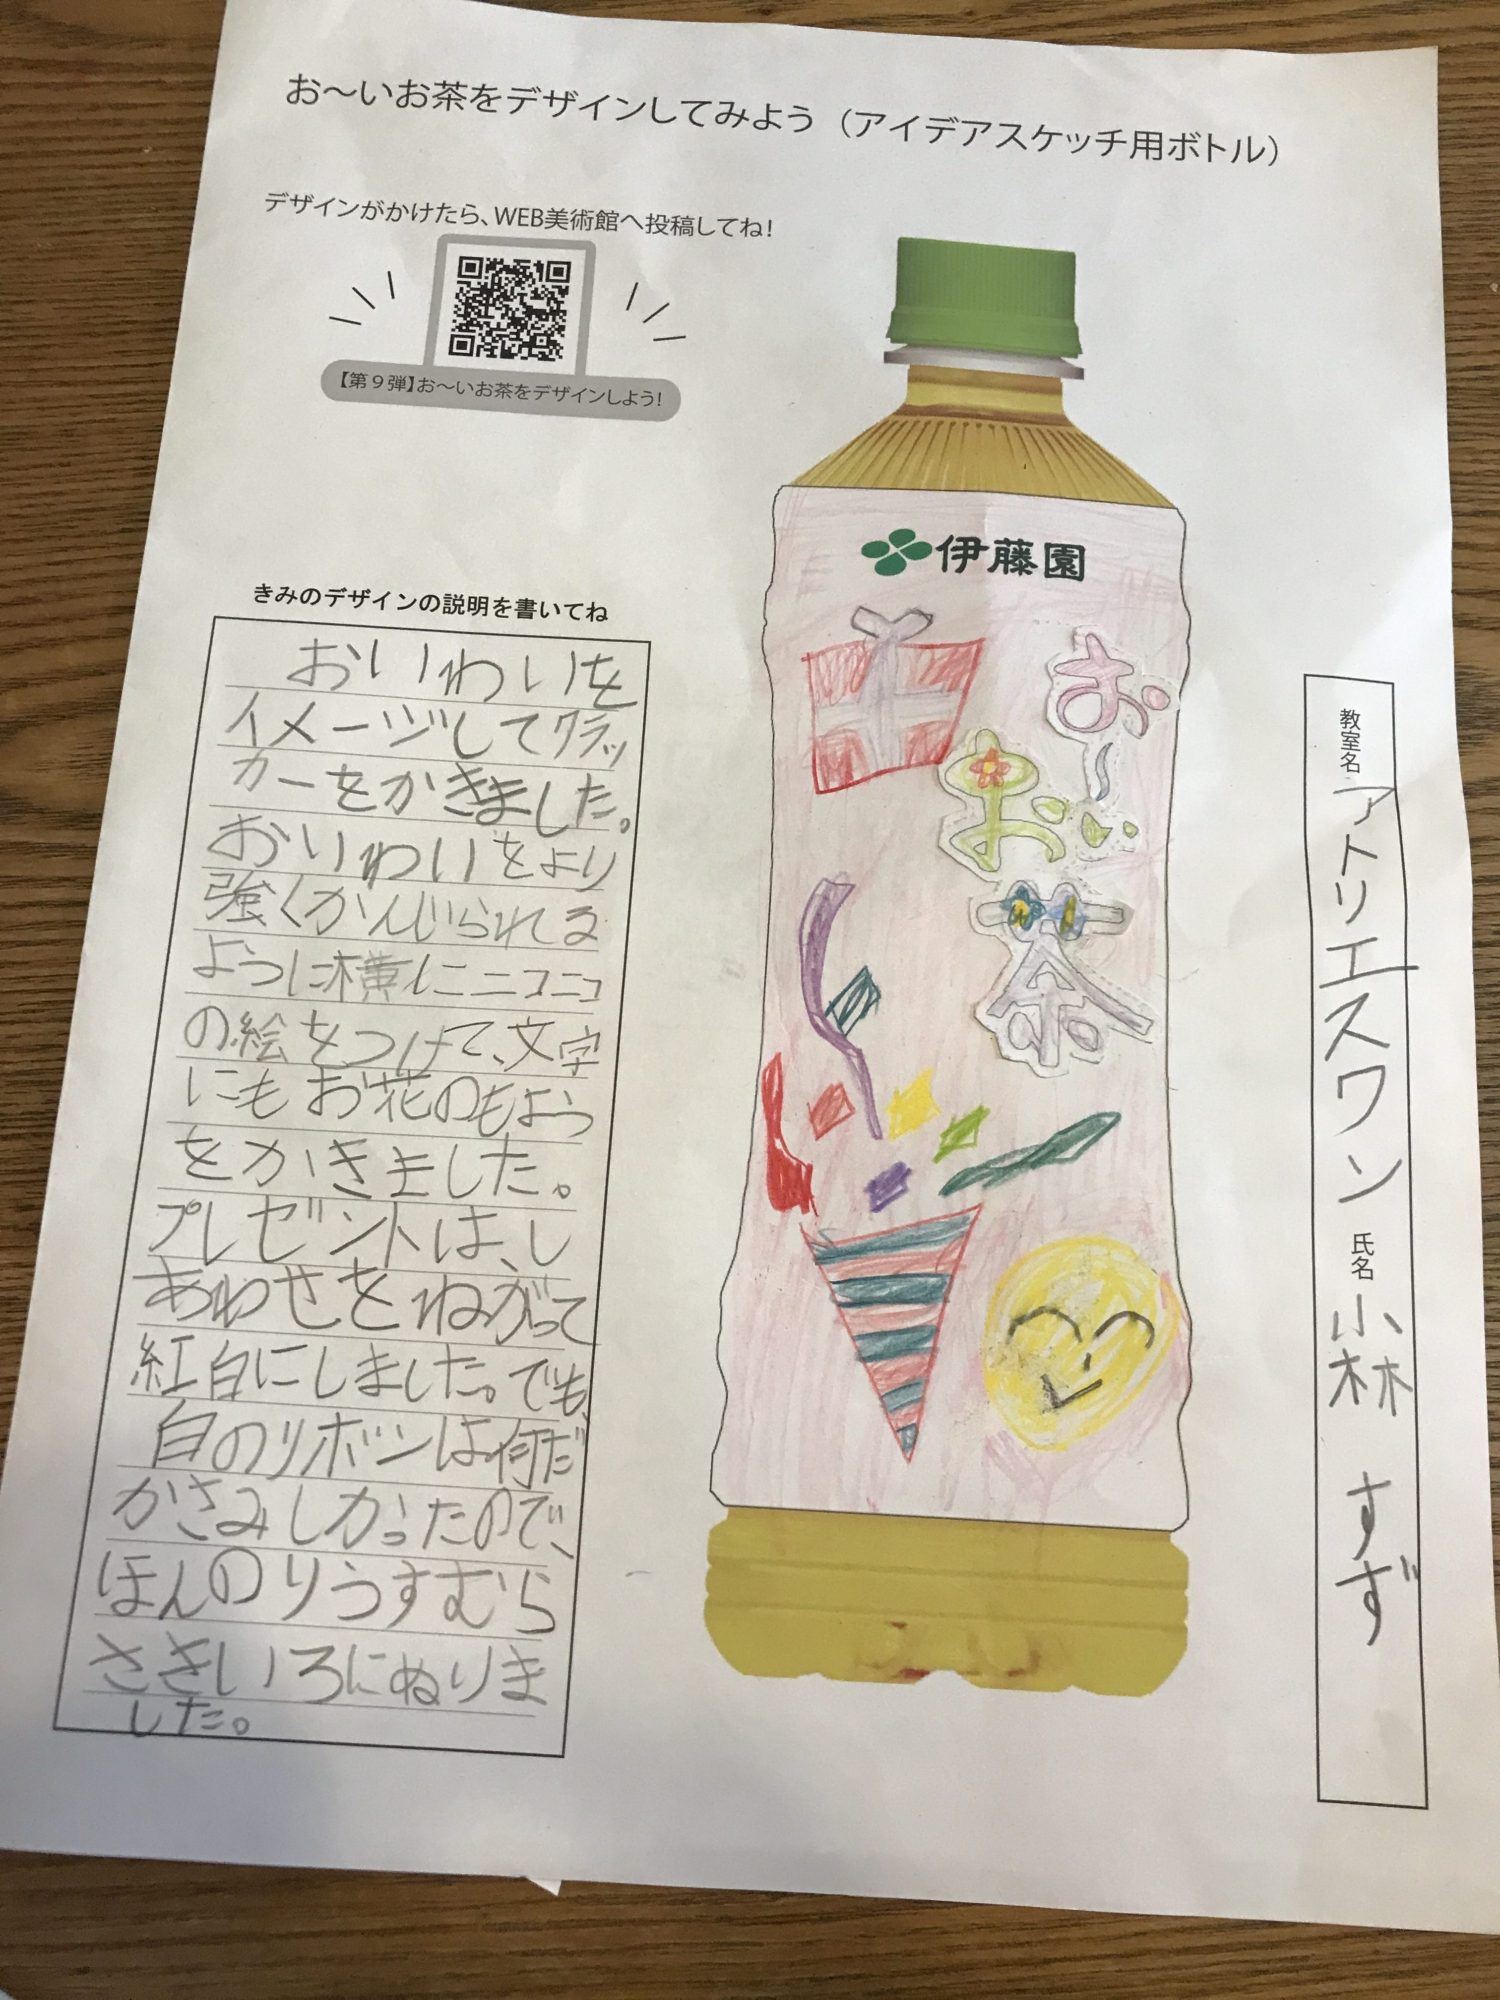 お～いお茶をデザインしてみよう（アイデアスケッチ用ボトル）
デザインがかけたら、WEB美術館へ投稿してね！
【第９弾】お～いお茶をデザインしよう！
きみのデザインの説明を書いてね
おいわいを
イメージしてクラッ
カーをかきました。
おいわいをより
強くかんじられる
ように横にニコニコ
の絵をつけて、文字
にもお花のもよう
をかきました。
プレゼントは、し
あわせをねがって
紅白にしました。でも、
白のリボンは何だ
かさみしかったので、
ほんのりうすむら
さきいろにぬりま
した。
伊藤園
お～い
お茶
教室名 アトリエスワン 氏名 小林 すず